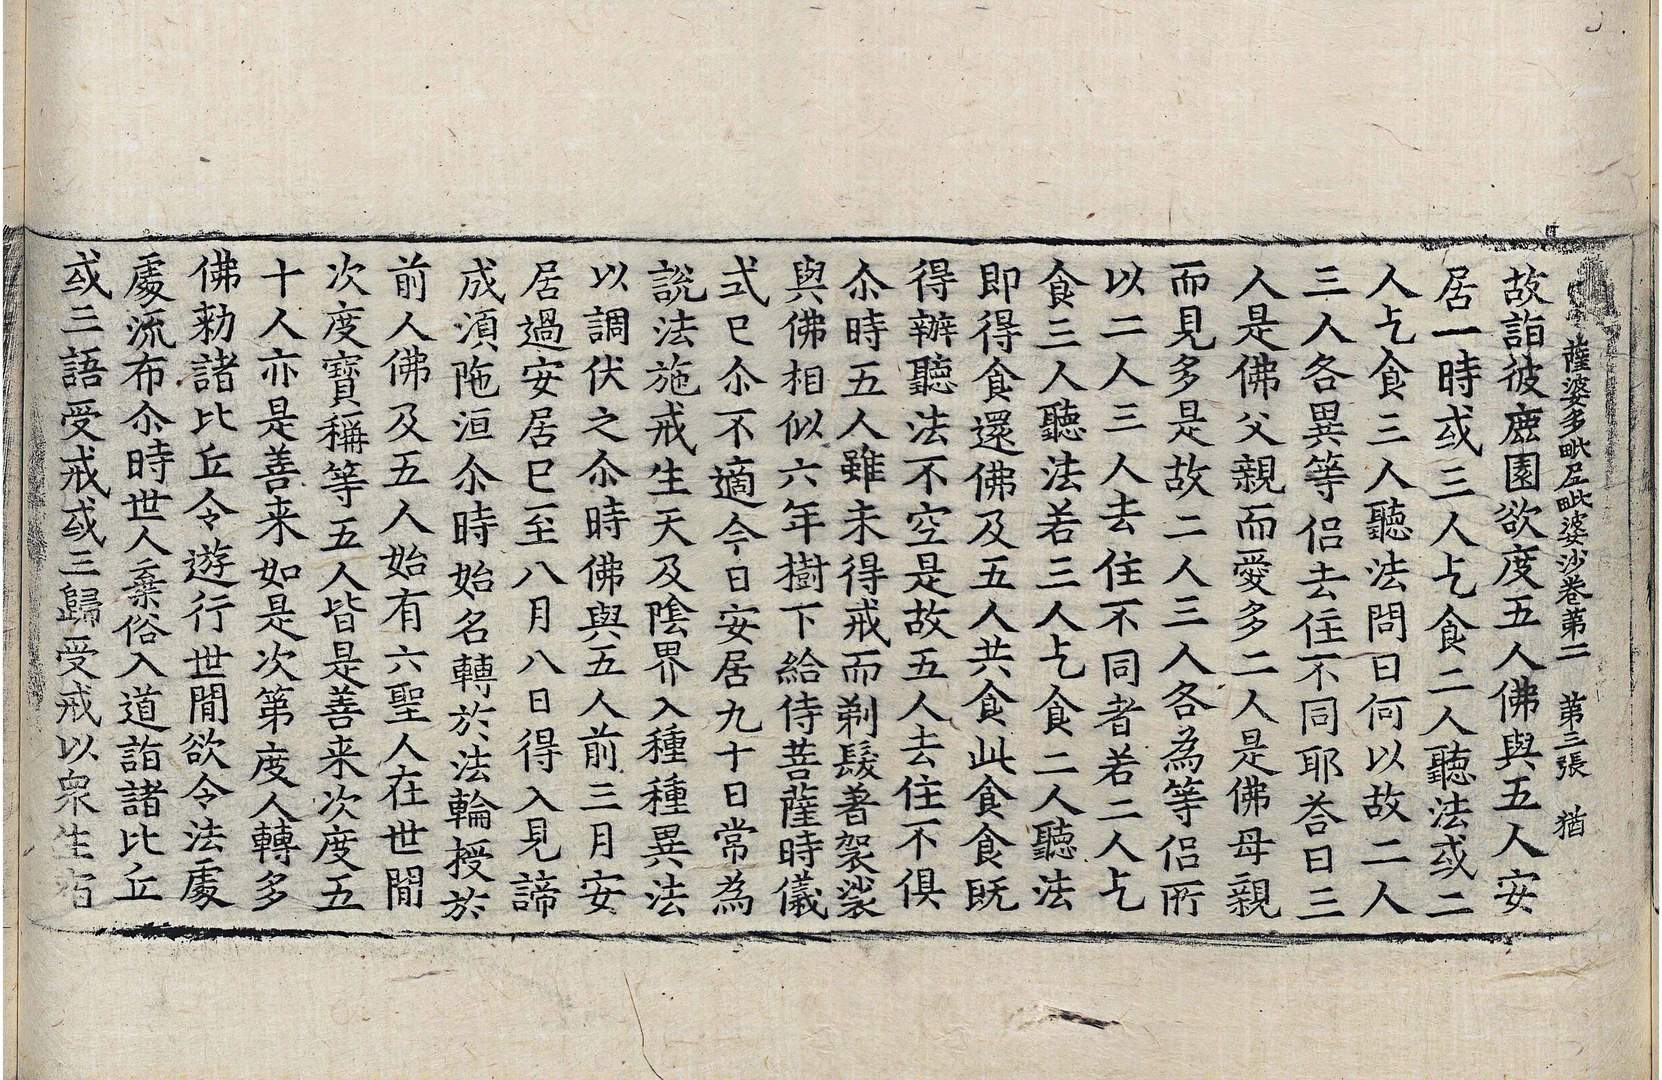 薩婆多毗尼毗婆沙卷第二 第三張 猶
故詣彼鹿園欲度五人佛與五人安
居一時或三人乞食二人聽法或二
人乞食三人聽法問曰何以故二人
三人各異等侶去住不同耶荅曰三
人是佛父親而愛多二人是佛母親
而見多是故二人三人各為等侶所
以二人三人去住不同者若二人乞
食三人聽法若三人乞食二人聽法
即得食還佛及五人共食此食食既
得辦聽法不空是故五人去住不俱
尒時五人雖未得戒而剃髮著袈裟
與佛相似六年樹下給侍菩薩時儀
式已尒不適今日安居九十日常為
說法施戒生天及陰界入種種異法
以調伏之尒時佛與五人前三月安
居過安居已至八月八日得入見諦
成湏陁洹尒時始名轉於法輪授於
前人佛及五人始有六聖人在世間
次度寶稱等五人皆是善来次度五
十人亦是善来如是次第度人轉多
佛勑諸比丘令遊行世間欲令法處
處流布尒時世人棄俗入道詣諸比丘
或三語受戒或三歸受戒以衆生宿